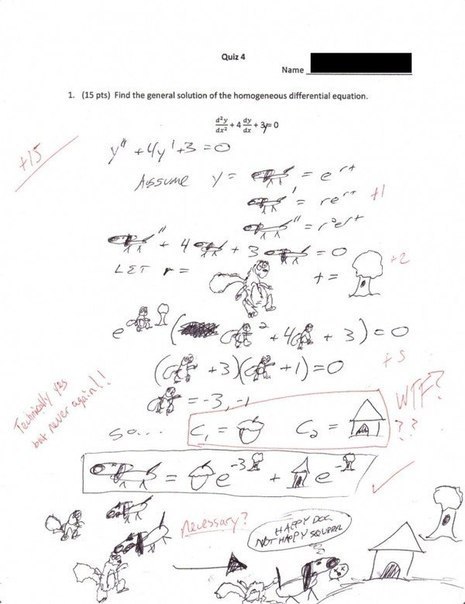 Quiz 4
Name
1. (15 pts) Find the general solution of the homogeneous differential equation.
d²y/dx² + 4 dy/dx + 3y = 0
+15
y'' + 4y' + 3 = 0
ASSUME y = = e^rt
' = re^rt
+1
'' = r²e^rt
'' + 4 ' + 3 = 0
LET r = t =
+2
e ( ² + 4 + 3) = 0
( + 3)( + 1) = 0
+5
= -3, -1
Technically yes
but never again!!
SO... C₁ = C₂ =
WTF?
??
= e^-3 + e^-
Necessary?
HAPPY DOG
NOT HAPPY SQUIRREL